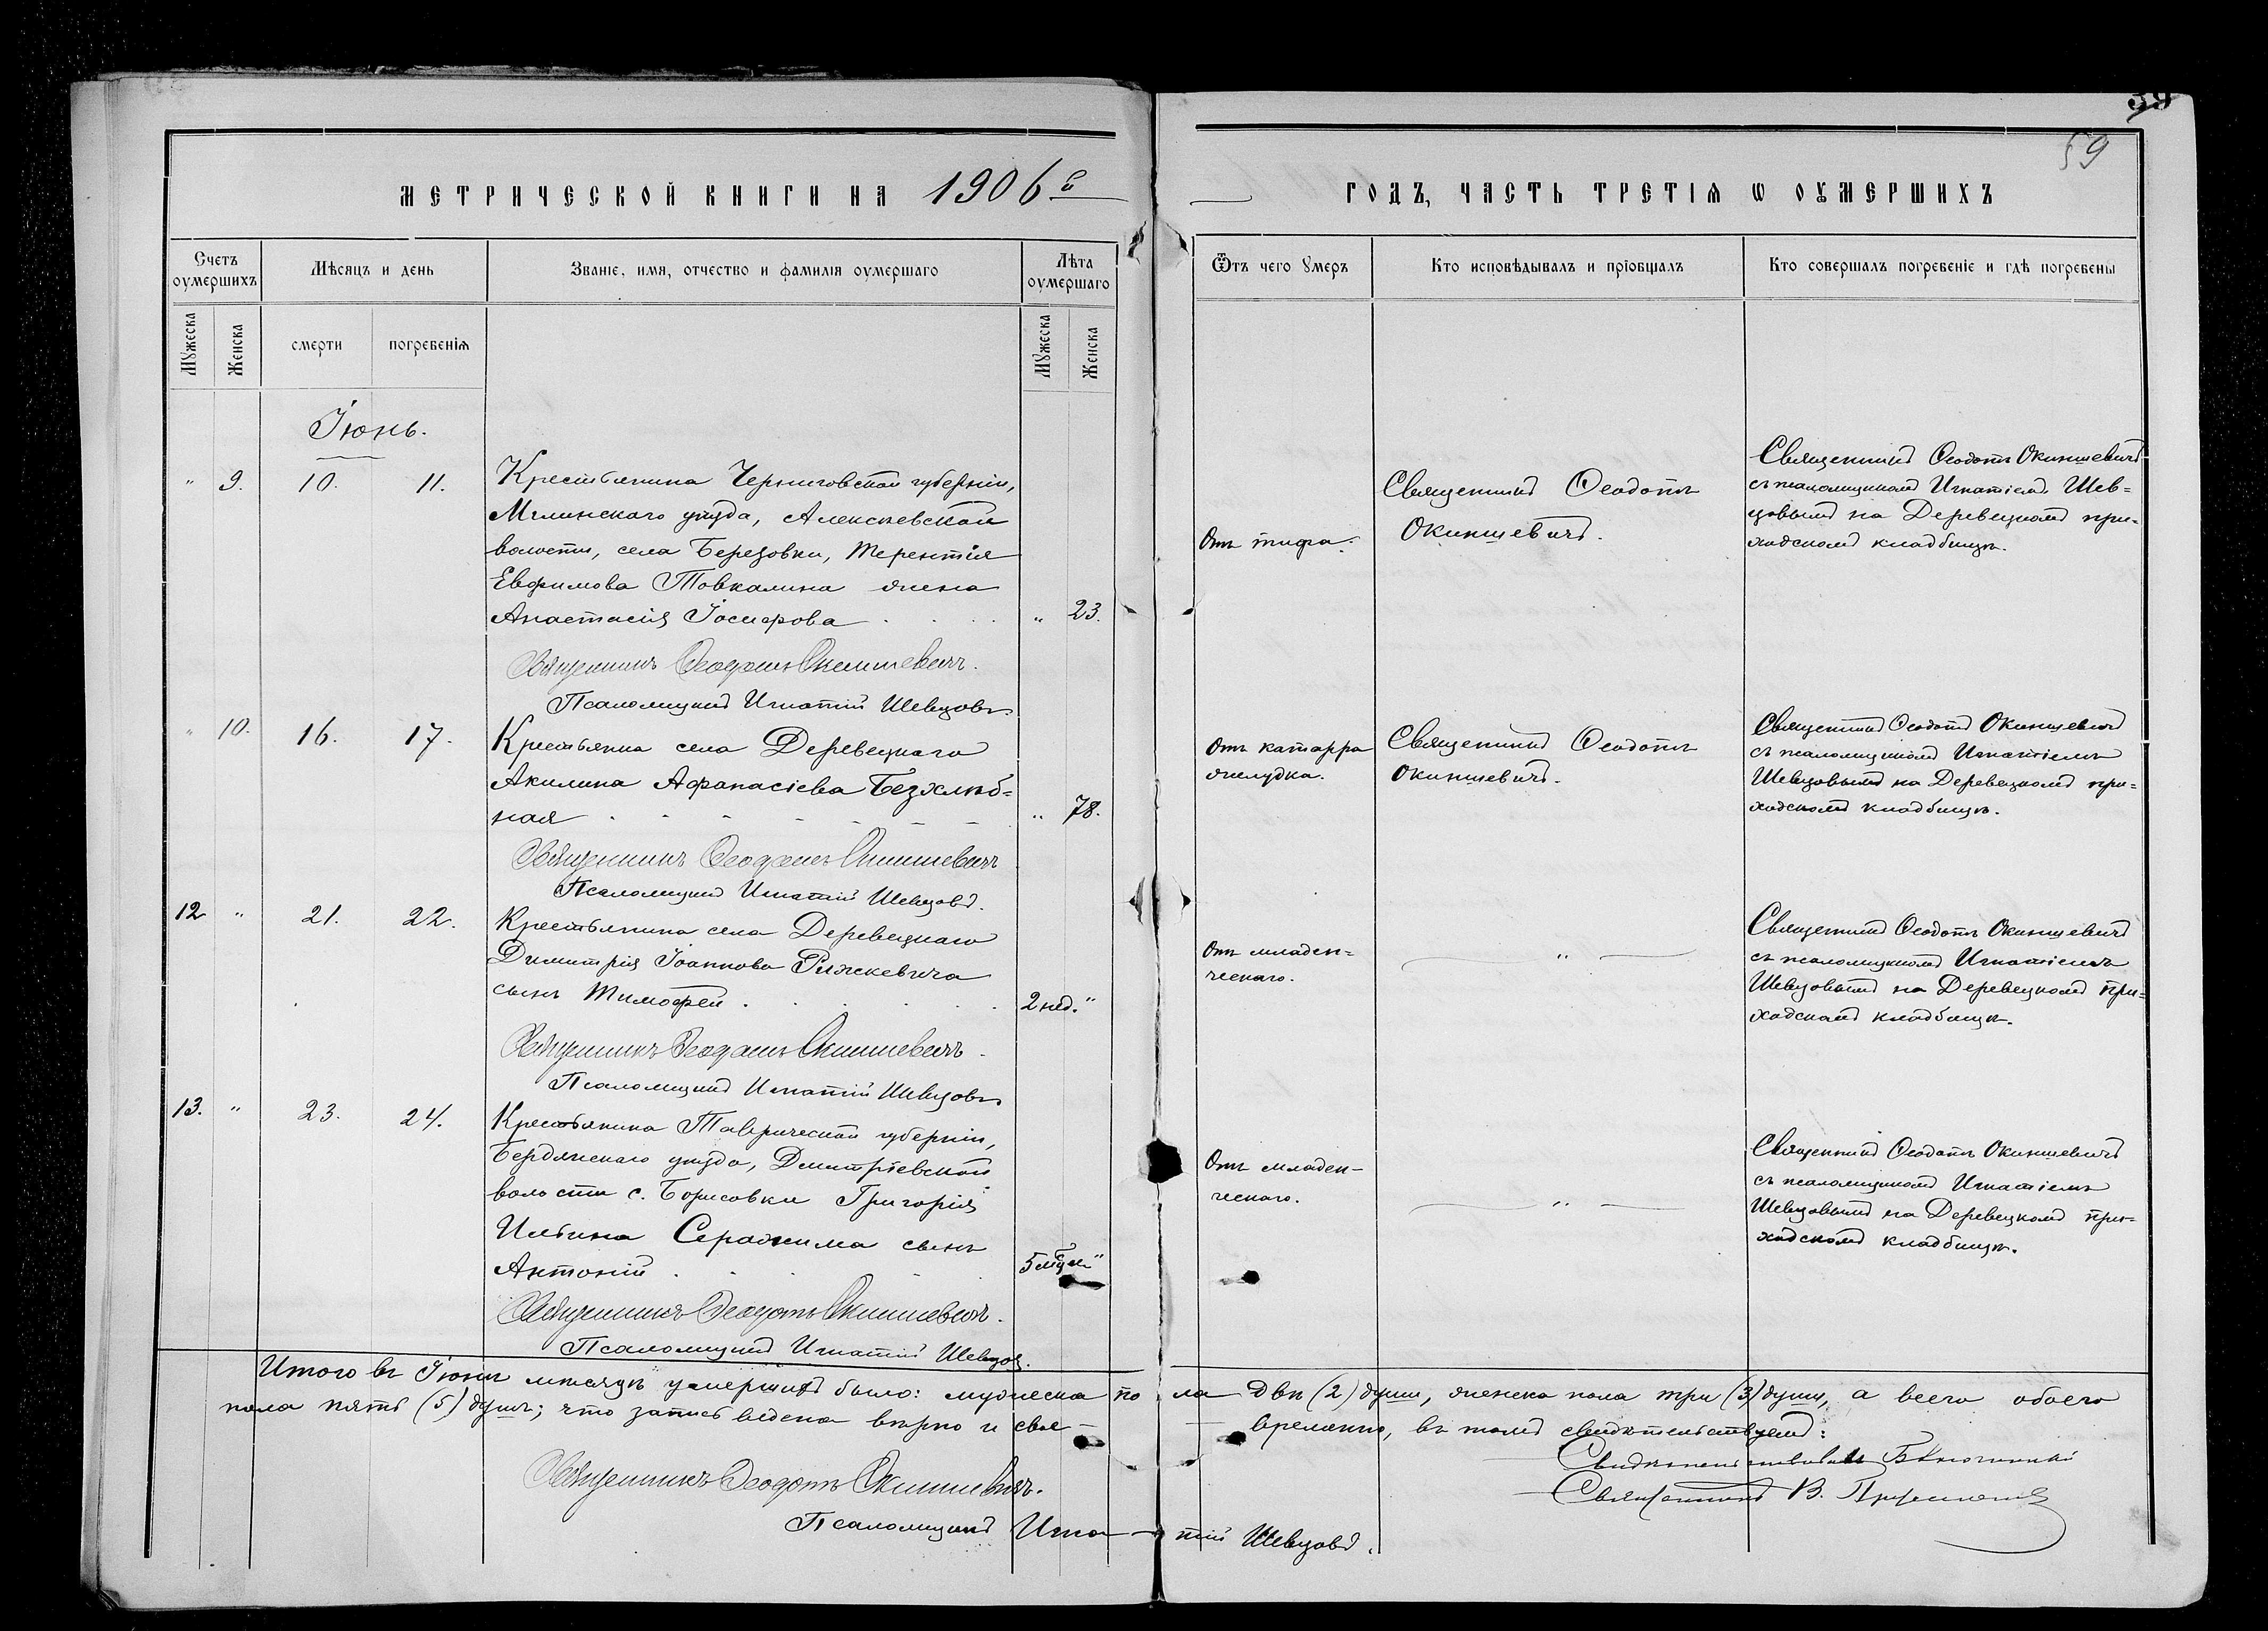 39
59
МЕТРИЧЕСКОЙ КНИГИ НА 1906й
ГОДЪ, ЧАСТЬ ТРЕТІѦ Ѡ ОУМЕРШИХЪ
Счетъ оумершихъ
Мѣсяцъ и день
Званіе, имя, отчество и фамилія оумершаго
Лѣта оумершаго
Ѿтъ чего умеръ
Кто исповѣдывалъ и пріобщалъ
Кто совершалъ погребеніе и гдѣ погребены
Мужеска
Женска
смерти
погребенія
Мужеска
Женска
Іюнь.
" 9. 10. 11.
Крестьянина Черниговской губерніи,
Мглинскаго уѣзда, Алексѣевской
волости, села Березовки, Терентія
Евфимова Товкалина жена
Анастасія Іосифова " 23.
Священникъ Ѳеодотъ Окиншевичъ.
Псаломщикъ Игнатій Шевцовъ.
Отъ тифа.
Священникъ Ѳеодотъ
Окиншевичъ.
Священникъ Ѳеодотъ Окиншевичъ
съ псаломщикомъ Игнатіемъ Шев=
цовымъ на Деревецкомъ при-
ходскомъ кладбищѣ.
" 10. 16. 17.
Крестьянка села Деревецкаго
Акилина Афанасіева Безхлѣб=
ная " 78.
Священникъ Ѳеодотъ Окиншевичъ
Псаломщикъ Игнатій Шевцовъ.
Отъ катарра
желудка.
Священникъ Ѳеодотъ
Окиншевичъ.
Священникъ Ѳеодотъ Окиншевичъ
съ псаломщикомъ Игнатіемъ
Шевцовымъ на Деревецкомъ при=
ходскомъ кладбищѣ.
12 " 21. 22.
Крестьянина села Деревецкаго
Димитрія Іоаннова Рижкевича
сынъ Тимофей. 2 нед. "
Священникъ Ѳеодотъ Окиншевичъ.
Псаломщикъ Игнатій Шевцовъ
Отъ младен=
ческаго.
"
Священникъ Ѳеодотъ Окиншевичъ
съ псаломщикомъ Игнатіемъ
Шевцовымъ на Деревецкомъ при=
ходскомъ кладбищѣ.
13. " 23. 24.
Крестьянина Таврической губерніи,
Бердянскаго уѣзда, Дмитріевской
волости с. Борисовки Григорія
Ильина Серажима сынъ
Антоній. 5 "
Священникъ Ѳеодотъ Окиншевичъ.
Псаломщикъ Игнатій Шевцовъ.
Отъ младен-
ческаго.
"
Священникъ Ѳеодотъ Окиншевичъ
съ псаломщикомъ Игнатіемъ
Шевцовымъ на Деревецкомъ при-
ходскомъ кладбищѣ.
Итого въ Іюнѣ мѣсяцѣ умершихъ было: мужеска пола двѣ (2) души, женска пола три (3) души, а всего обоего
пола пять (5) душъ; что запись ведена вѣрно и свое-временно, въ томъ свидѣтельствуемъ:
Священникъ Ѳеодотъ Окиншевичъ.
Псаломщикъ Игнатій Шевцовъ.
Священникъ В.